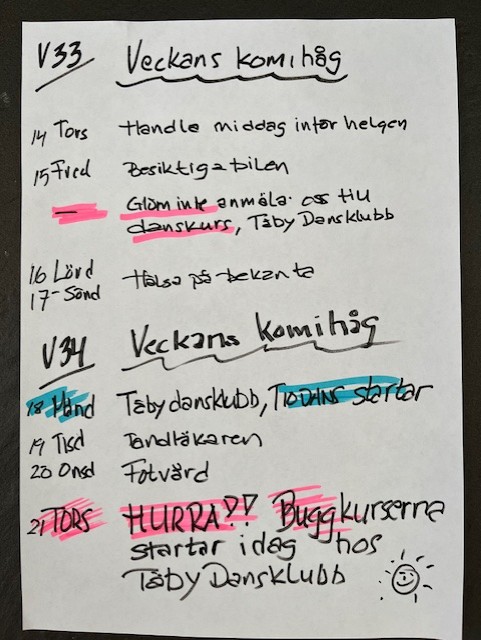 V33 Veckans komihåg
14 Tors Handla middag inför helgen
15 Fred Besiktiga bilen
— Glöm inte anmäla oss till
danskurs, Täby Dansklubb
16 Lörd
17 - Sönd Hälsa på bekanta
V34 Veckans komihåg
18 Månd Täby dansklubb, TIODANS startar
19 Tisd Tandläkaren
20 Onsd Fotvård
21 TORS HURRA!! Buggkurserna
startar idag hos
Täby Dansklubb